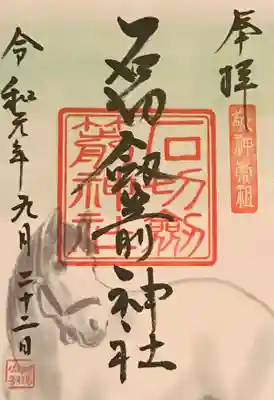 奉拝
敬神崇祖
石切劔箭神社
石切劔
箭神社
令和元年九月二十二日